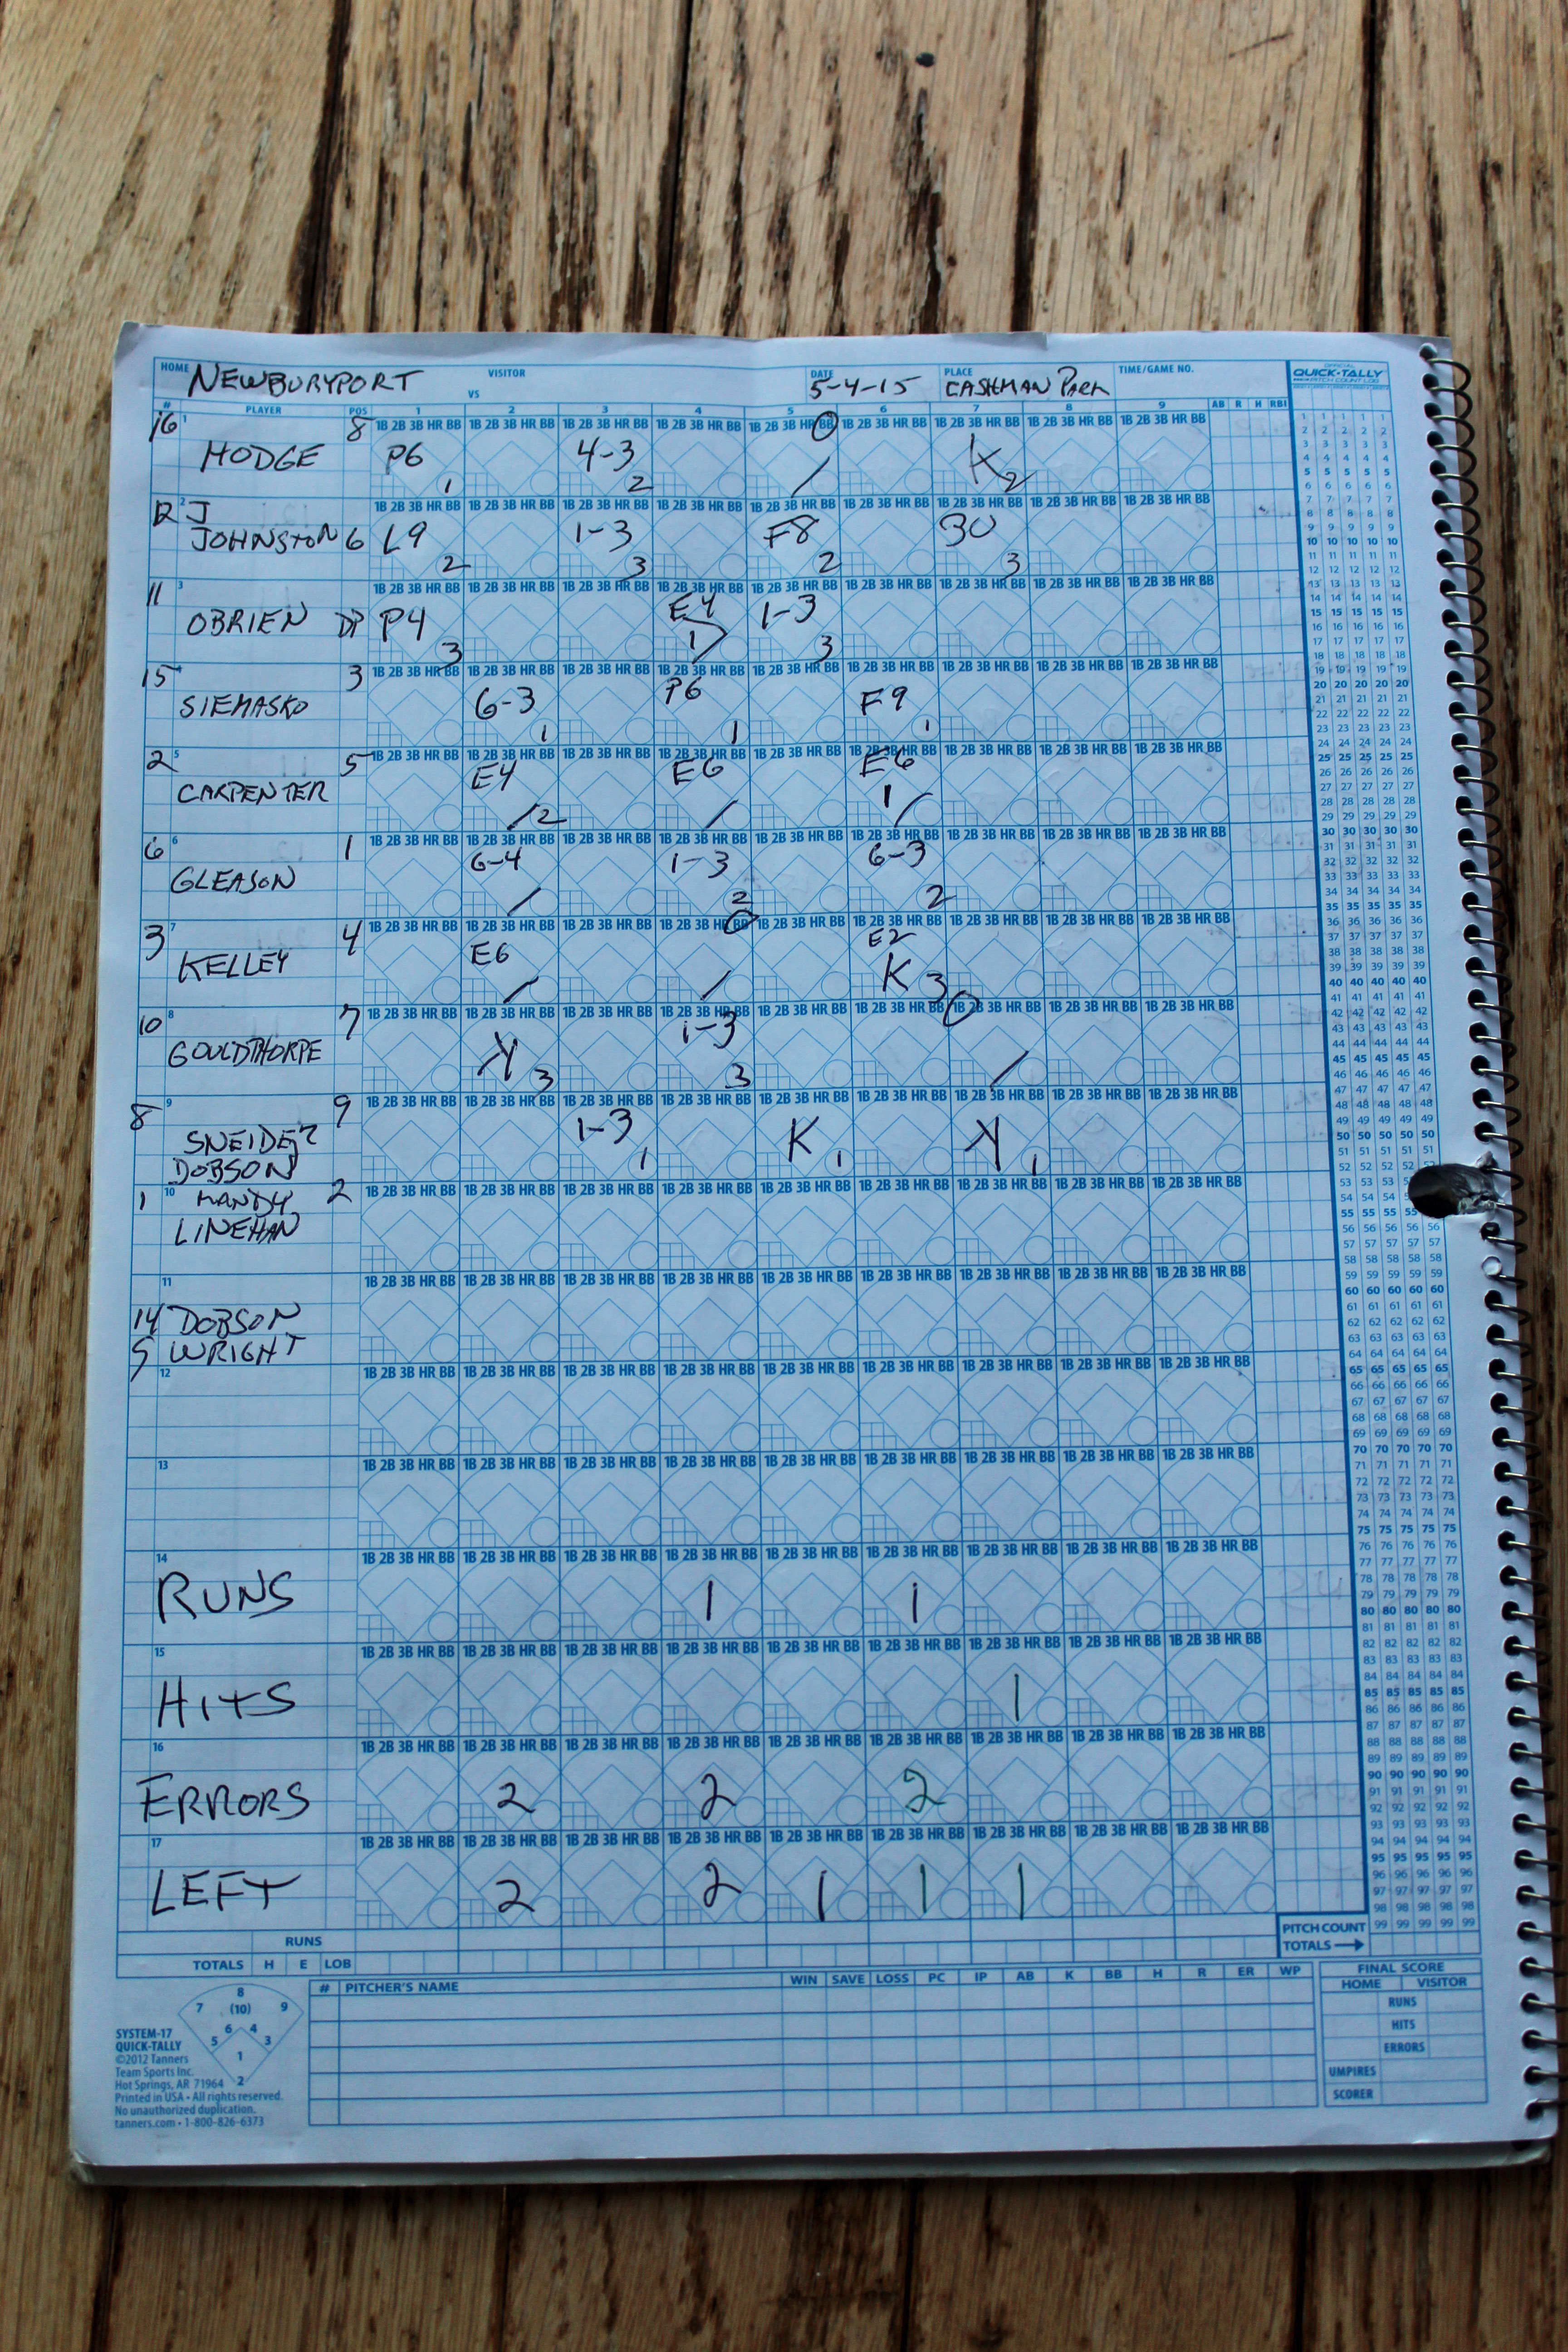 HOME NEWBURYPORT VISITOR VS DATE 5-4-15 PLACE CASHMAN PARK TIME/GAME NO.
OFFICIAL QUICK-TALLY PITCH COUNT LOG
# PLAYER POS 1 2 3 4 5 6 7 8 9 AB R H RBI
16 1 HODGE 8 P6 1 4-3 2 K 2
12 2 J JOHNSTON 6 L9 2 1-3 3 F8 2 3U 3
11 3 OBRIEN DP P4 3 E4 1 1-3 3
15 4 SIEMASKO 3 6-3 1 P6 1 F9 1
2 5 CARPENTER 5 E4 2 E6 E6 1
6 6 GLEASON 1 6-4 1-3 2 6-3 2
3 7 KELLEY 4 E6 E2 K 3
10 8 GOULDTHORPE 7 K 3 1-3 3
8 9 SNEIDER 9 1-3 1 K 1 K 1
DOBSON
1 10 MANDY 2
LINEHAN
11
14 DOBSON
5 WRIGHT
12
13
14 RUNS 1 1
15 HITS 1
16 ERRORS 2 2 2
17 LEFT 2 2 1 1 1
1B 2B 3B HR BB
PITCH COUNT
TOTALS
RUNS
TOTALS H E LOB
# PITCHER'S NAME WIN SAVE LOSS PC IP AB K BB H R ER WP
FINAL SCORE
HOME VISITOR
RUNS
HITS
ERRORS
UMPIRES
SCORER
8
7 (10) 9
6 4
5 3
1
2
SYSTEM-17
QUICK-TALLY
©2012 Tanners
Team Sports Inc.
Hot Springs, AR 71964
Printed in USA • All rights reserved.
No unauthorized duplication.
tanners.com • 1-800-826-6373